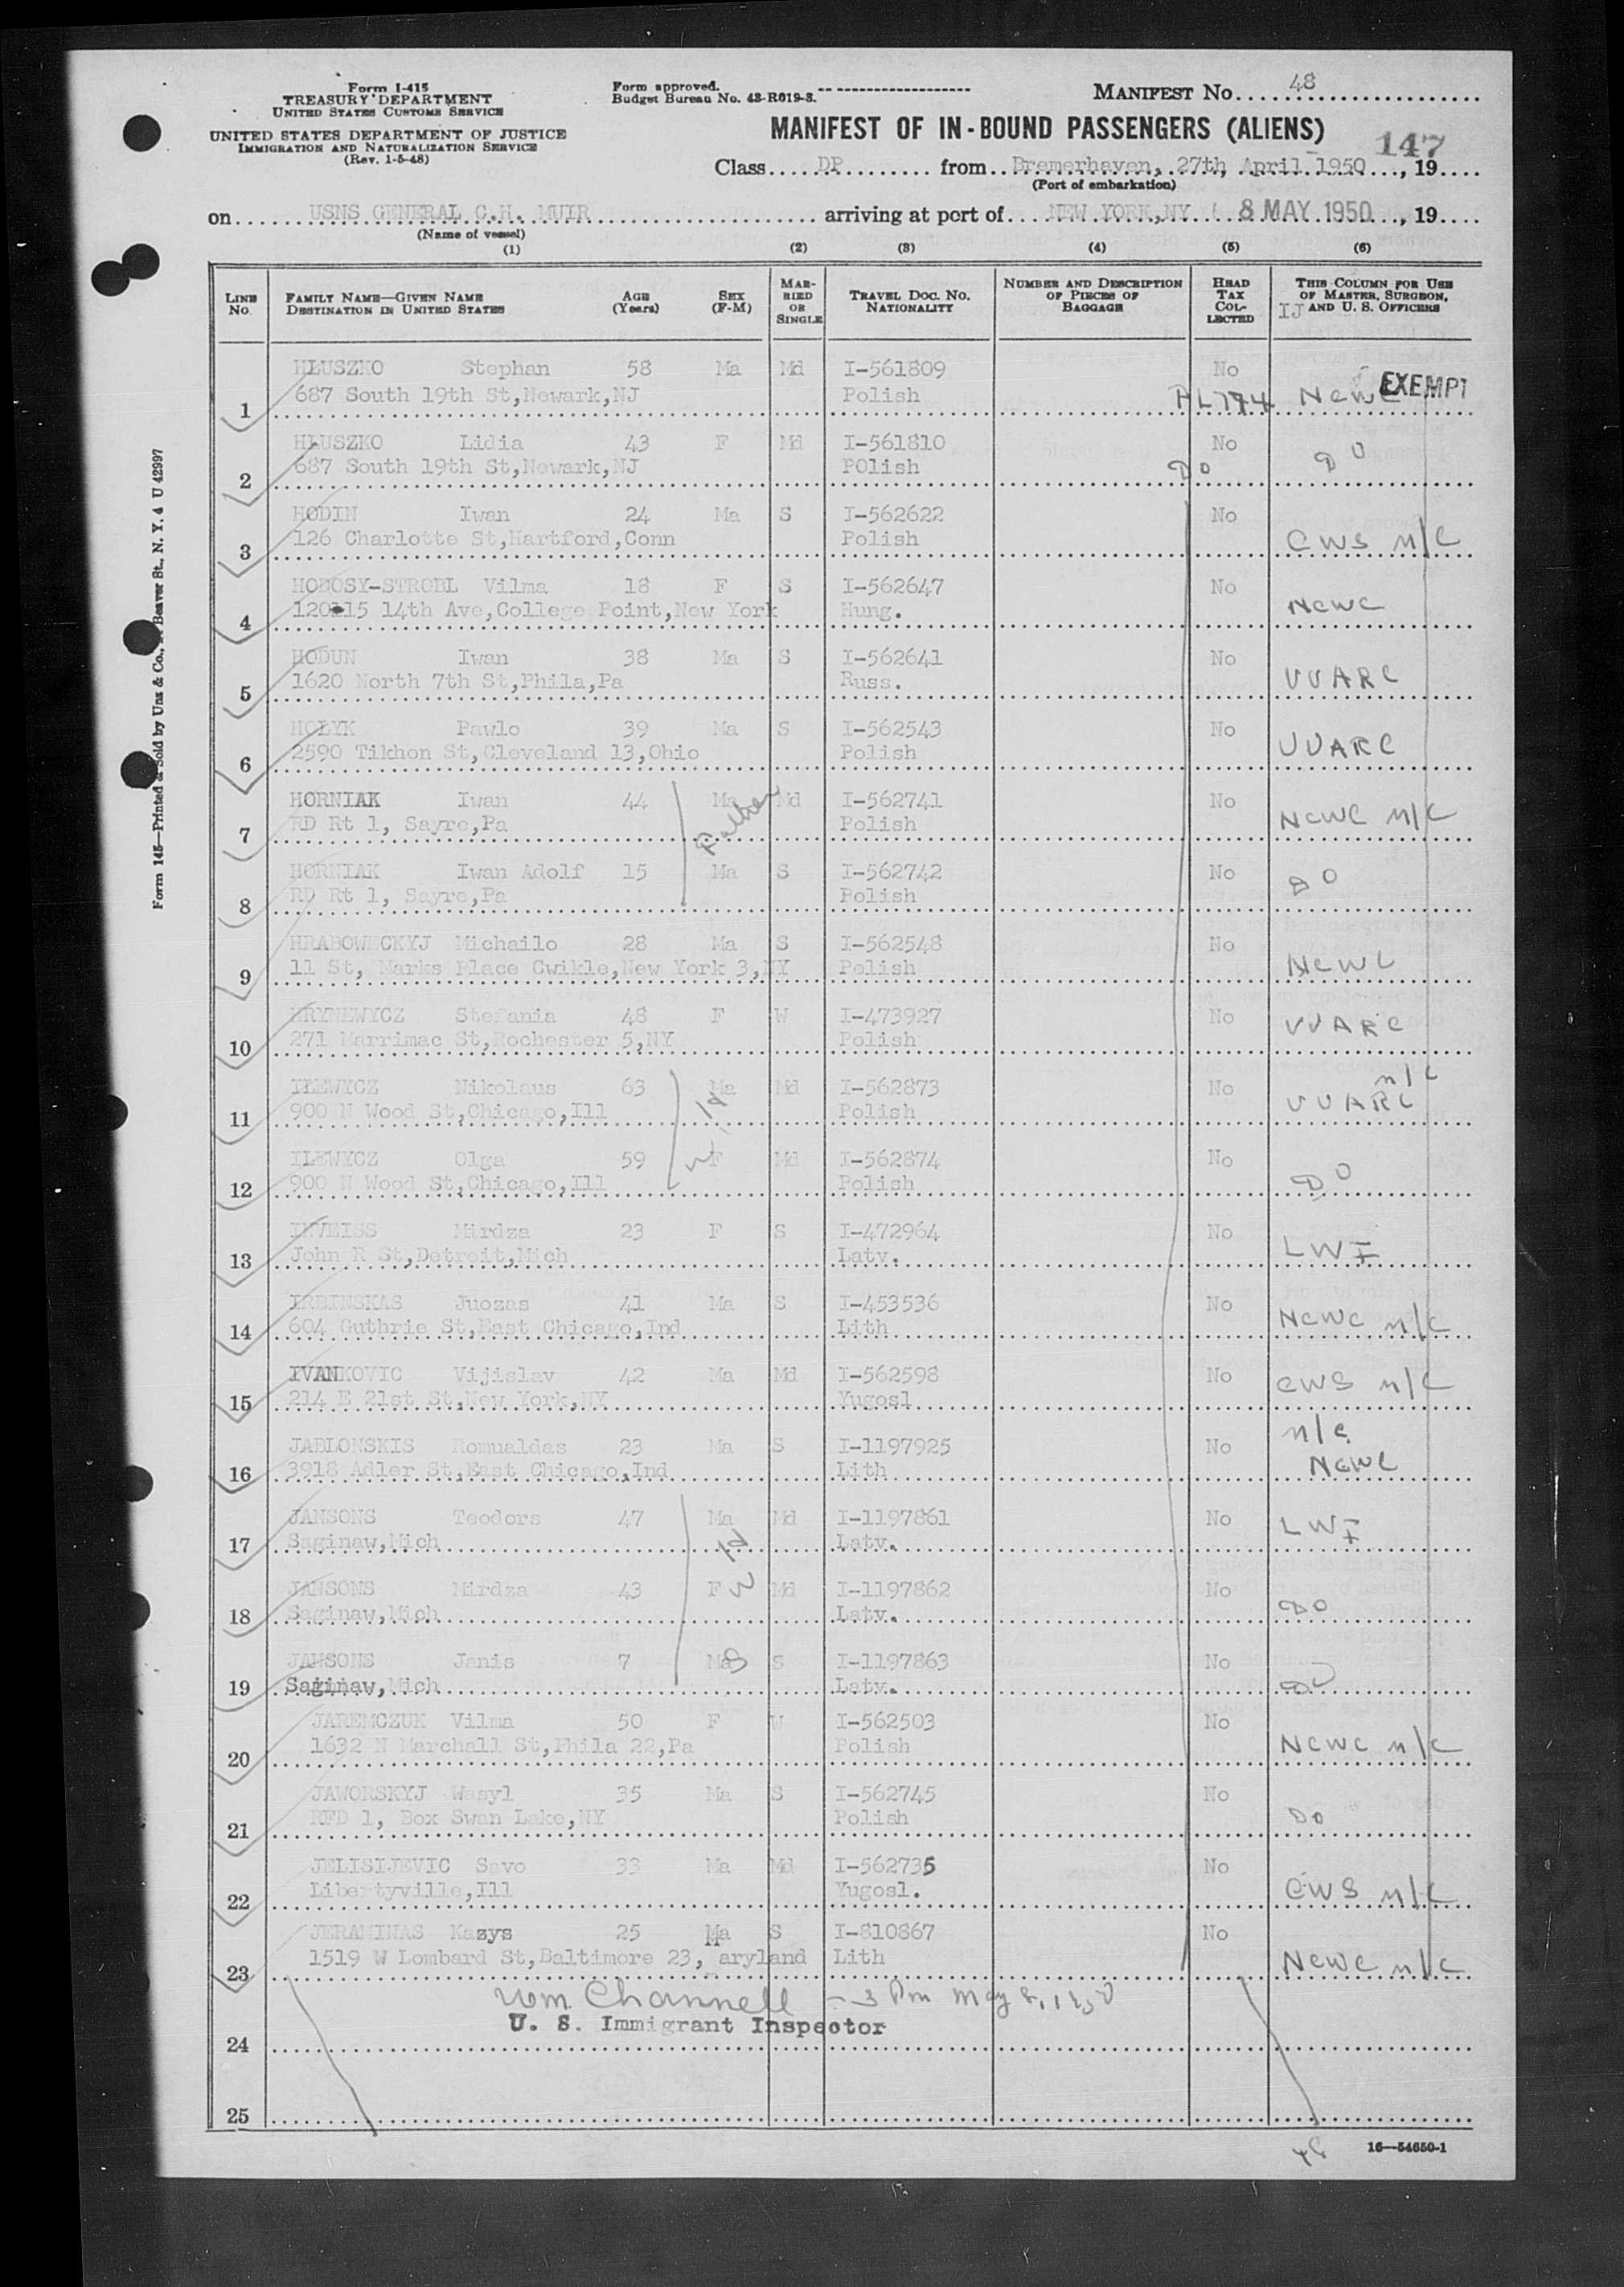 Form I-415
TREASURY DEPARTMENT
UNITED STATES CUSTOMS SERVICE
UNITED STATES DEPARTMENT OF JUSTICE
IMMIGRATION AND NATURALIZATION SERVICE
(Rev. 1-5-48)
Form approved.
Budget Bureau No. 43-R019-3.
MANIFEST No. 48
MANIFEST OF IN-BOUND PASSENGERS (ALIENS)
147
Class DP from Bremerhaven, 27th April 1950, 19
(Port of embarkation)
on USNS GENERAL C.H. MUIR arriving at port of NEW YORK,NY 8 MAY 1950, 19
(Name of vessel)
(1) (2) (3) (4) (5) (6)
LINE No. FAMILY NAME—GIVEN NAME DESTINATION IN UNITED STATES AGE (Years) SEX (F-M) MARRIED OR SINGLE TRAVEL DOC. NO. NATIONALITY NUMBER AND DESCRIPTION OF PIECES OF BAGGAGE HEAD TAX COLLECTED THIS COLUMN FOR USE OF MASTER, SURGEON, AND U. S. OFFICERS IJ
HLUSZKO Stephan 58 Ma Md I-561809 No
1 687 South 19th St,Newark,NJ Polish PL774 NCWC EXEMPT
HLUSZKO Lidia 43 F Md I-561810 No
2 687 South 19th St,Newark,NJ POlish DO DO
HODIN Iwan 24 Ma S I-562622 No
3 126 Charlotte St,Hartford,Conn Polish CWS n/c
HODOSY-STROBL Vilma 18 F S I-562647 No
4 120-15 14th Ave,College Point,New York Hung. NCWC
HODUN Iwan 38 Ma S I-562641 No
5 1620 North 7th St,Phila,Pa Russ. UUARC
HOLYK Pawlo 39 Ma S I-562543 No
6 2590 Tikhon St,Cleveland 13,Ohio Polish UUARC
HORNIAK Iwan 44 Ma Father Md I-562741 No
7 RD Rt 1, Sayre,Pa Polish NCWC n/c
HORNIAK Iwan Adolf 15 Ma S I-562742 No
8 RD Rt 1, Sayre,Pa Polish DO
HRABOWECKYJ Michailo 28 Ma S I-562548 No
9 11 St, Marks Place Cwikle,New York 3,NY Polish NCWC
HRYNEWYCZ Stefania 48 F W I-473927 No
10 271 Marrimac St,Rochester 5,NY Polish UUARC
ILEWYCZ Nikolaus 63 Ma Md I-562873 No n/c
11 900 N Wood St,Chicago,Ill Polish UUARC
ILEWYCZ Olga 59 F Md I-562874 No
12 900 N Wood St,Chicago,Ill Polish DO
INVEISS Mirdza 23 F S I-472964 No
13 John R St,Detroit,Mich Latv. LWF
IRBINSKAS Juozas 41 Ma S I-453536 No
14 604 Guthrie St,East Chicago,Ind Lith NCWC n/c
IVANKOVIC Vijislav 42 Ma Md I-562598 No
15 214 E 21st St,New York,NY Yugosl CWS n/c
JABLONSKIS Romualdas 23 Ma S I-1197925 No n/c
16 3918 Adler St,East Chicago,Ind Lith NCWC
JANSONS Teodors 47 Ma Md I-1197861 No
17 Saginaw,Mich Latv. LWF
JANSONS Mirdza 43 F Md I-1197862 No
18 Saginaw,Mich Latv. DO
JANSONS Janis 7 Ma S I-1197863 No
19 Saginaw,Mich Latv. DO
JAREMCZUK Vilma 50 F W I-562503 No
20 1632 N Marchall St,Phila 22,Pa Polish NCWC n/c
JAWORSKYJ Wasyl 35 Ma S I-562745 No
21 RFD 1, Box Swan Lake,NY Polish DO
JELISIJEVIC Savo 33 Ma Md I-562735 No
22 Libertyville,Ill Yugosl. CWS n/c
JERAMINAS Kazys 25 Ma S I-810867 No
23 1519 W Lombard St,Baltimore 23, Maryland Lith NCWC n/c
Wm. Channell - 3 Pm May 8, 1950
U. S. Immigrant Inspector
24
25
16—54650-1
Form 145—Printed & Sold by Unz & Co., Beaver St., N. Y. 4 U 42997